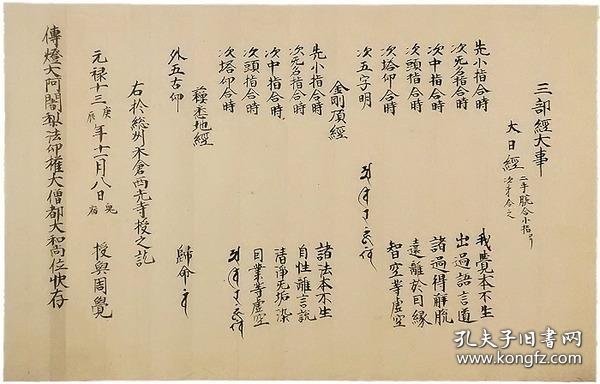 三部經大事
大日經 二手腕合小指ヨリ次第合之
先小指合時 我覺本不生
次无名指合時 出過語言道
次中指合時 諸過得解脱
次頭指合時 遠離於因縁
次塔仰合時 智空等虚空
次五字明
金剛頂經
先小指合時 諸法本不生
次无名指合時 自性離言説
次中指合時 清浄无垢染
次頭指合時 因業等虚空
次塔仰合時
蘓悉地經
外五古印 歸命
右於総州米倉西光寺授之訖
元禄十三庚辰年十一月八日 鬼宿 授與周覺
傳燈大阿闍梨法印權大僧都大和尚位
孔夫子旧书网
www.kongfz.com